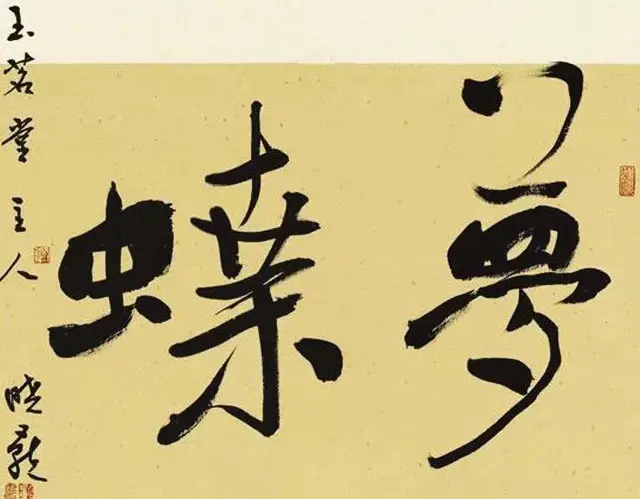 夢蝶
玉茗堂主人
晓